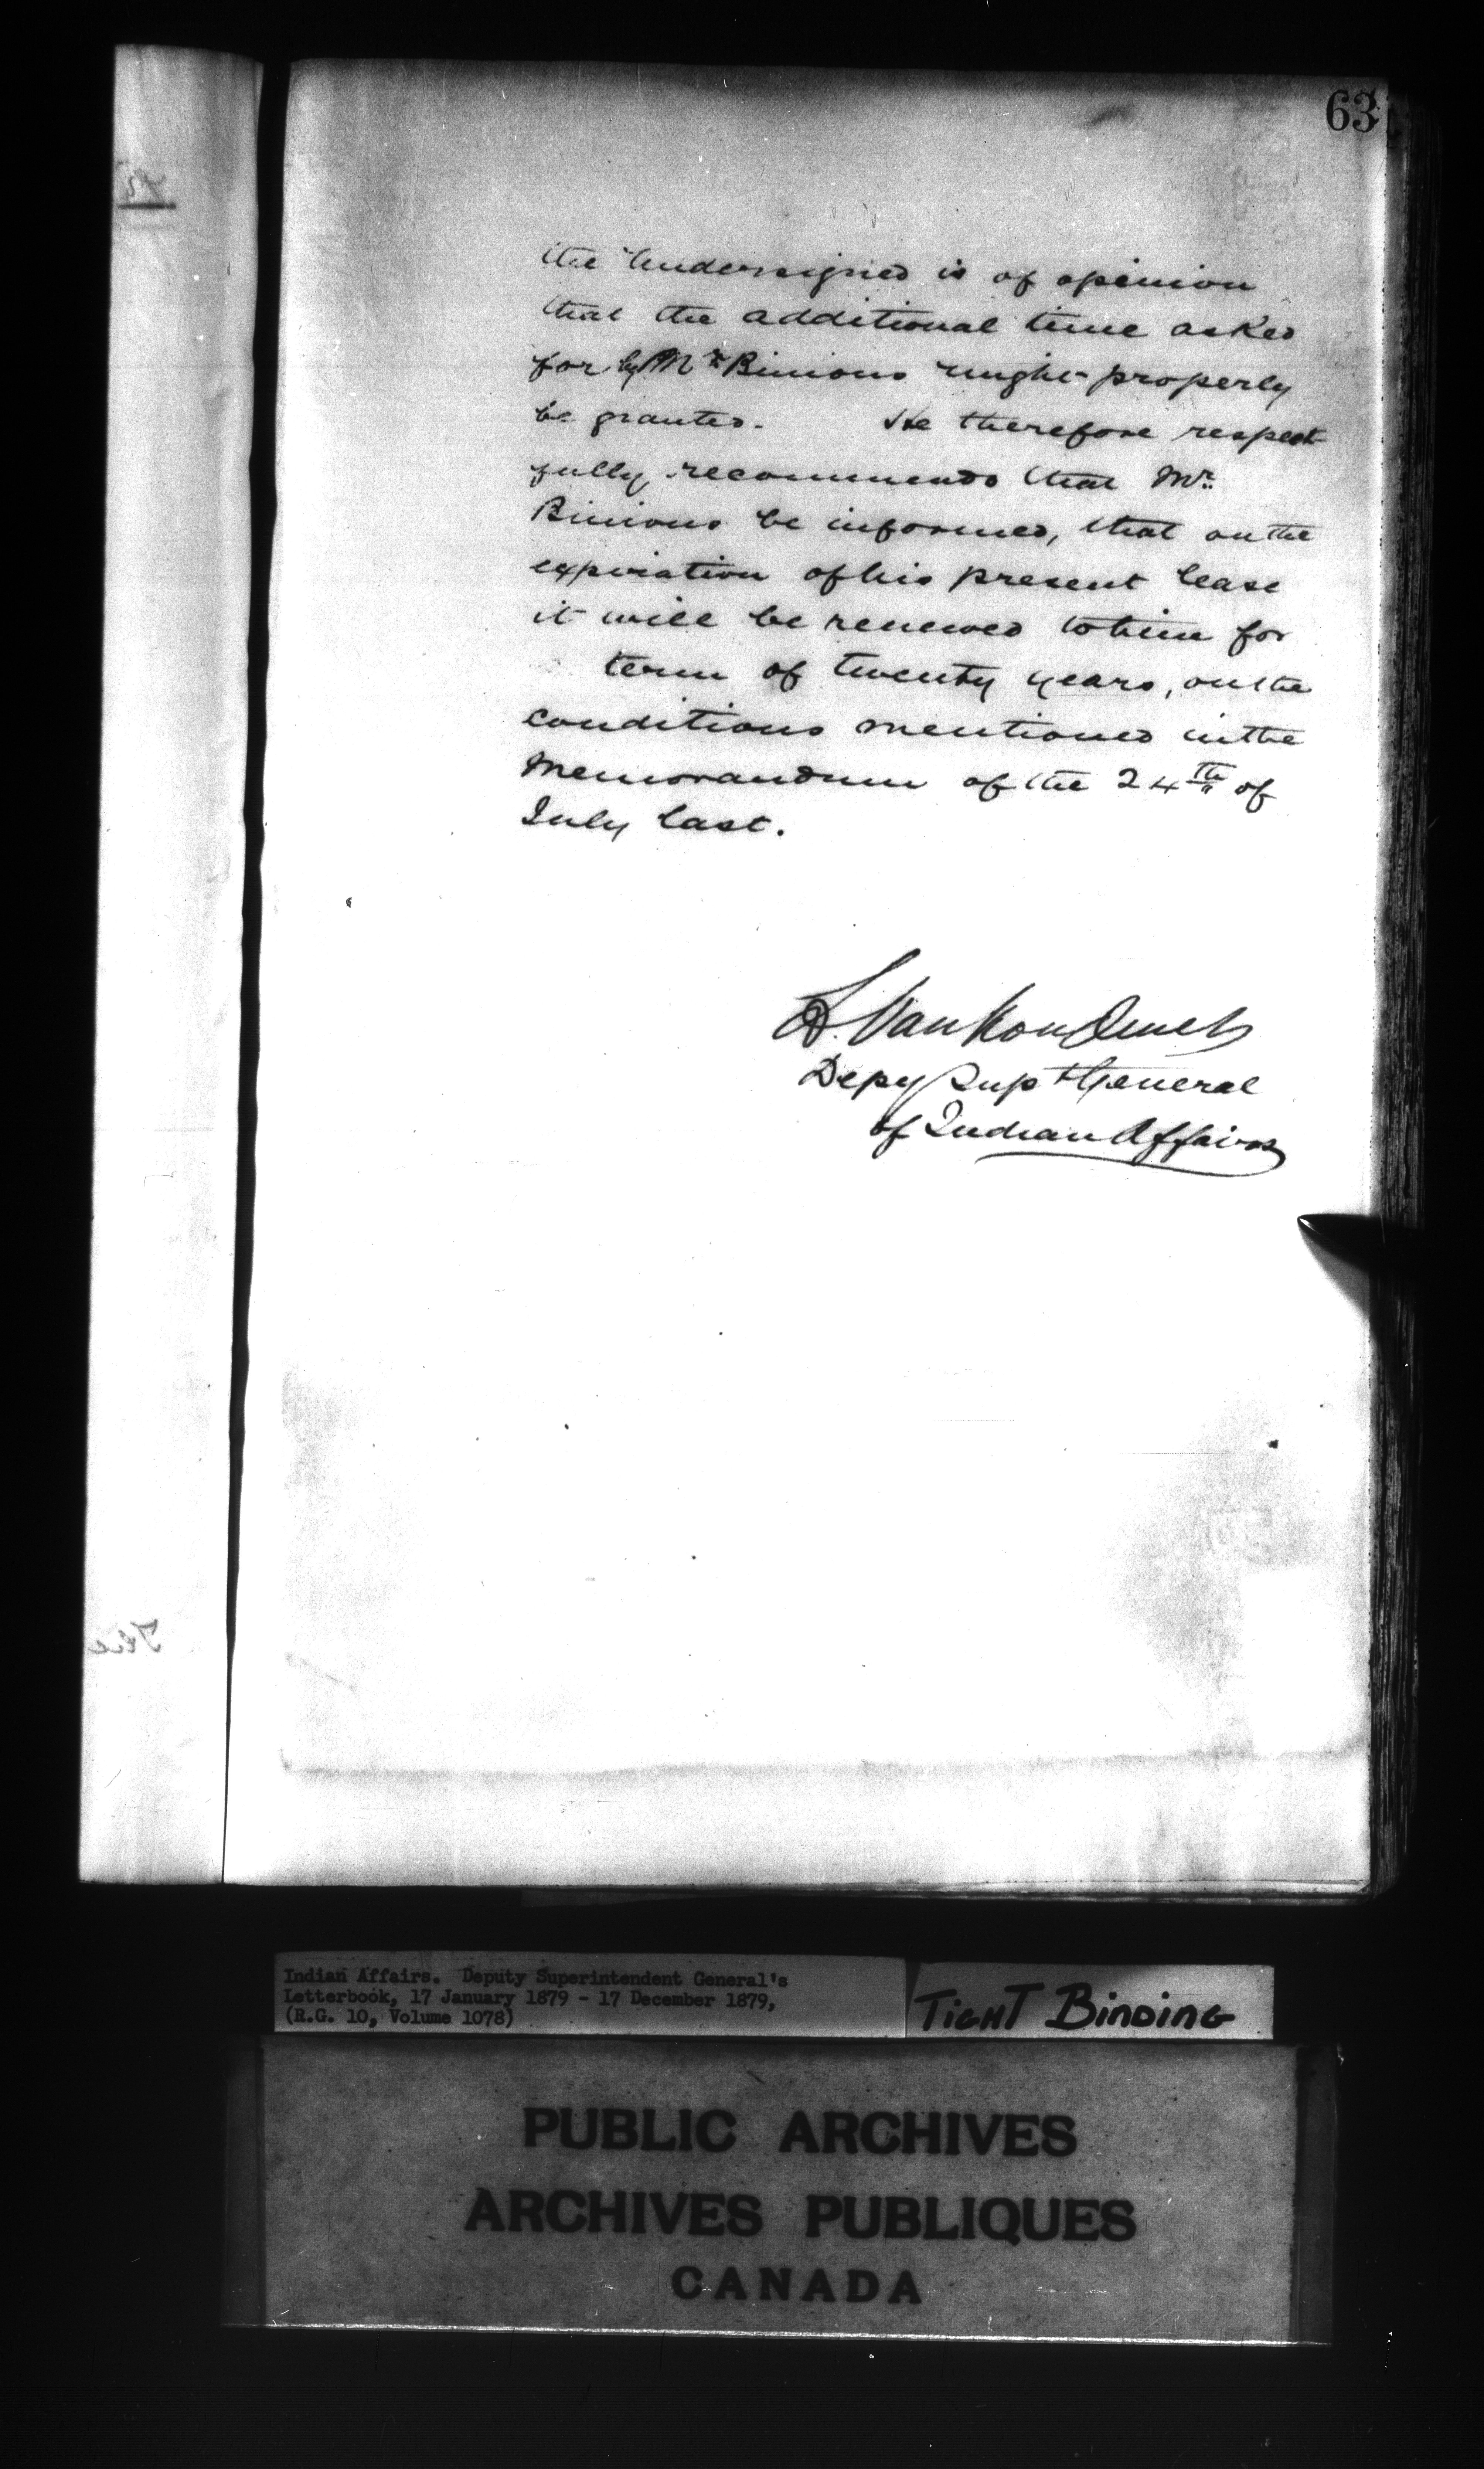 63
the Undersigned is of opinion
that the additional time asked
for by Mr Binions might properly
be granted. He therefore respect
fully recommends that Mr.
Binions be informed, that on the
expiration of his present lease
it will be renewed to him for
term of twenty years, on the
conditions mentioned in the
Memorandum of the 24th of
July last.
L. VanKoughnet
Depy Supt General
of Indian Affairs
The
Indian Affairs. Deputy Superintendent General's
Letterbook, 17 January 1879 - 17 December 1879,
(R.G. 10, Volume 1078)
TIGHT BINDING
PUBLIC ARCHIVES
ARCHIVES PUBLIQUES
CANADA